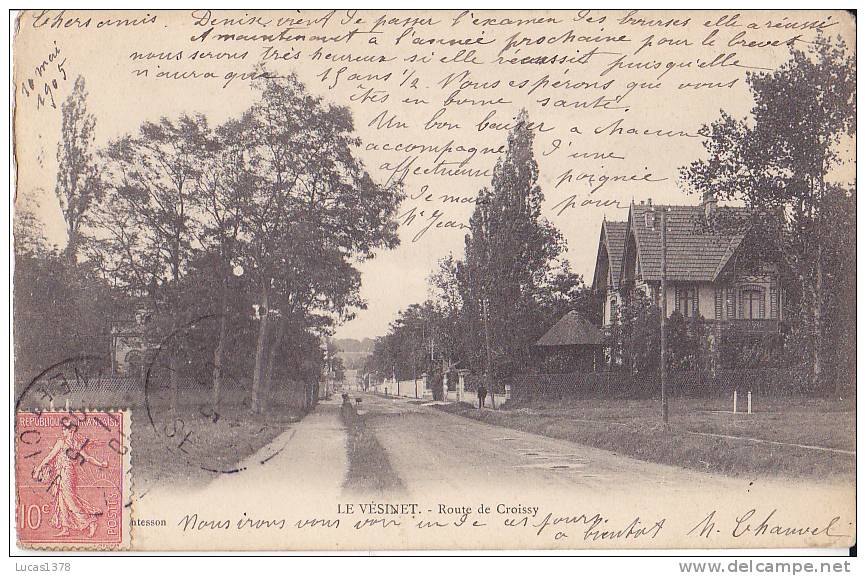 Chers amis. Denise vient de passer l'examen des bourses elle a réussi
A maintenant à l'année prochaine pour le brevet
nous serons très heureux si elle réussit puisqu'elle
n'aura que 15 ans 1/2. Nous espérons que vous
êtes en bonne santé.
Un bon baiser a chacune
accompagné d'une
affectueuse poignée
de main pour
St Jean
10 mai
1905
RÉPUBLIQUE FRANÇAISE
10c
POSTES
LE VÉSINET. - Route de Croissy
ntesson
Nous irons vous voir un de ces jours
a bientôt H. Chauvel
Lucas1378
www.delcampe.net